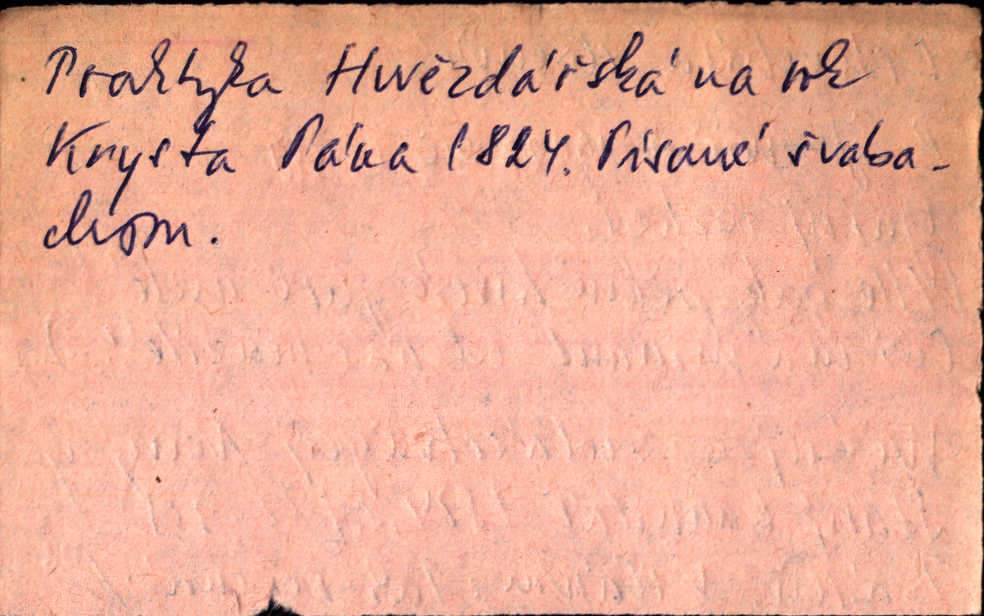 Praktyka Hwězdářská na rok
Krysta Pána 1824. Písané švaba-
chom.